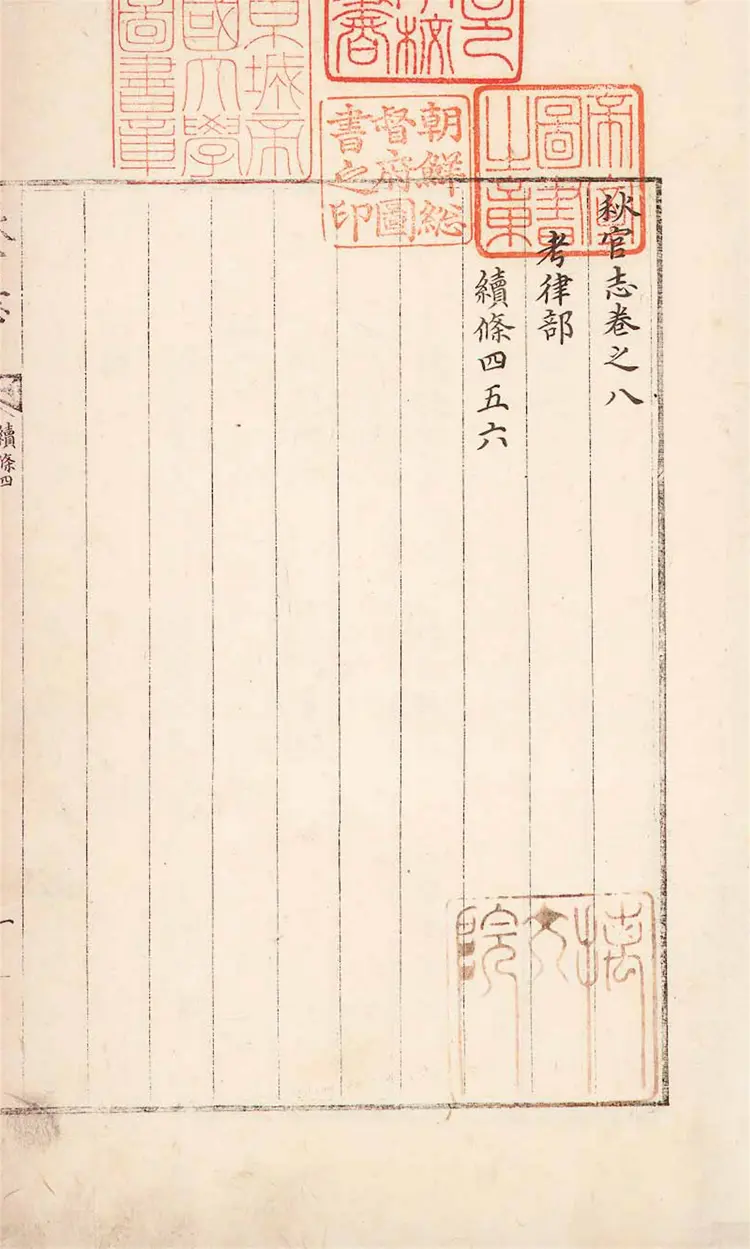 秋官志卷之八
考律部
續條四五六
帝室
圖書
之章
朝鮮総
督府圖
書之印
京城帝
國大學
圖書章
摛文院
續條四
一